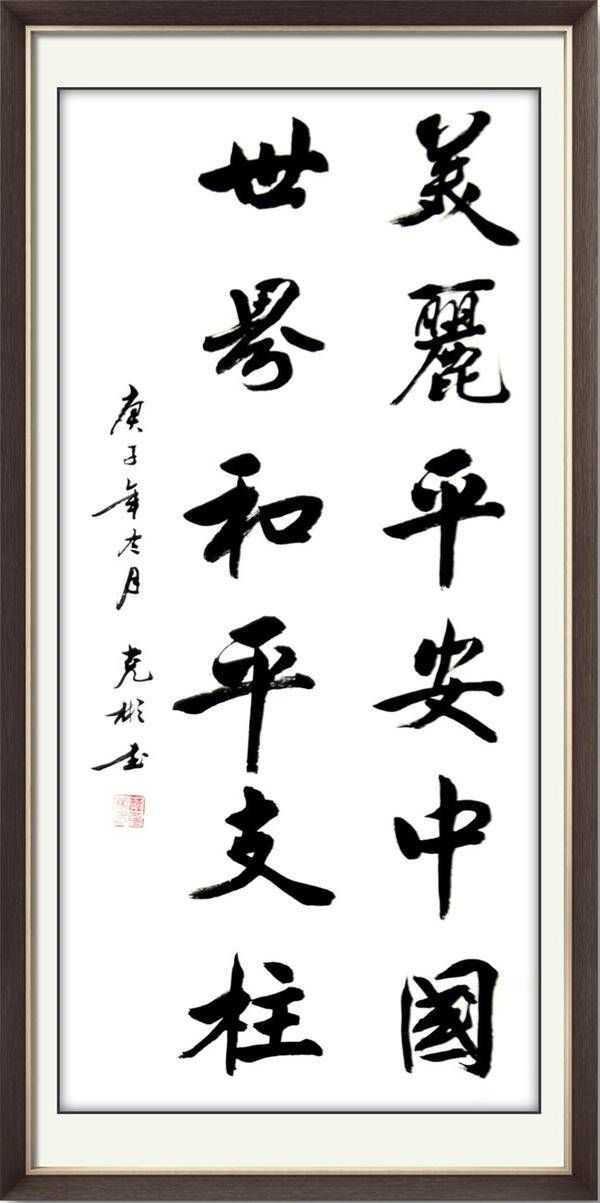 美麗平安中國
世界和平支柱
庚子年六月 克彬书